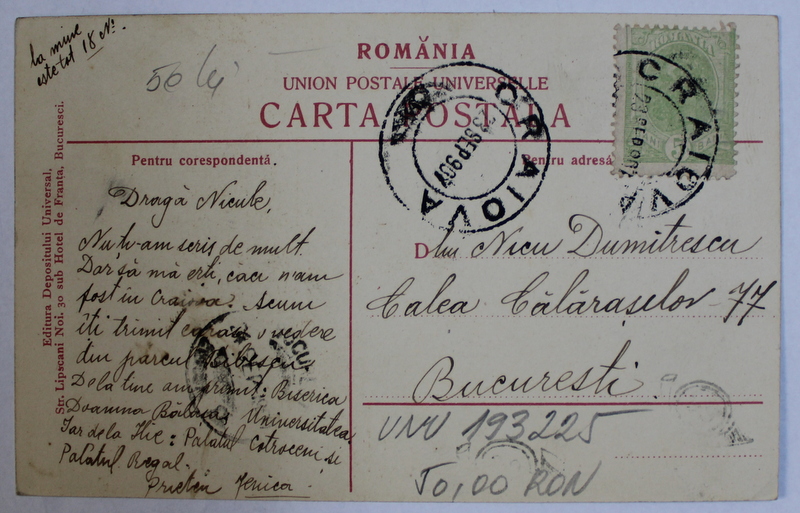 la mine
este tot 18 No.
50 lei
ROMĂNIA
UNION POSTALE UNIVERSELLE
CARTA POSTALA
CRAIOVA
23 SEP 907
CRAIOVA
23 SEP 907
Pentru corespondentă.
Pentru adresă
Editura Depositului Universal,
Str. Lipscani Noi. 30 sub Hotel de Franta, Bucuresci.
Dragă Nicule,
Nu ți-am scris de mult.
Dar să mă erți, căci n'am
fost în Craiova. Acum
îți trimit o vedere
din parcul Bibescu.
De la tine am primit: Biserica
Doamna Bălașa, Universitatea
Iar de la Ilie: Palatul Cotroceni și
Palatul Regal.
Prieten Jenica.
Dlui Nicu Dumitrescu
Calea Călărașelor 77
Bucuresti.
UNU 193225
50,00 RON